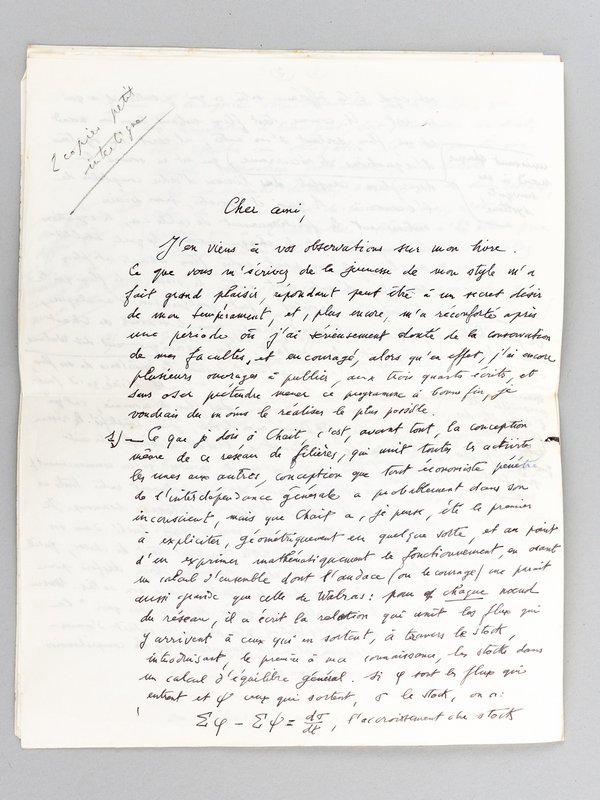 2 copies petit
interligne
Cher ami,
J'en viens à vos observations sur mon livre.
Ce que vous m'écrivez de la jeunesse de mon style m'a
fait grand plaisir, répondant peut être à un secret désir
de mon tempérament, et, plus encore, m'a réconforté après
une période où j'ai sérieusement douté de la conservation
de mes facultés, et encouragé, alors qu'en effet, j'ai encore
plusieurs ouvrages à publier, aux trois quarts écrits, et
sans oser prétendre mener ce programme à bonne fin, je
voudrais du moins le réaliser le plus possible.
1) — Ce que je dois à Chait, c'est, avant tout, la conception
même de ce réseau de filières, qui unit toutes les activités
les unes aux autres, conception que tout économiste pénétré
de l'interdépendance générale a probablement dans son
inconscient, mais que Chait a, je pense, été le premier
à expliciter, géométriquement en quelque sorte, et au point
d'en exprimer mathématiquement le fonctionnement, en osant
un calcul d'ensemble dont l'audace (ou le courage) me paraît
aussi grande que celle de Walras : pour chaque nœud
du réseau, il a écrit la relation qui unit les flux qui
y arrivent à ceux qui en sortent, à travers le stock,
introduisant, le premier à ma connaissance, les stocks dans
un calcul d'équilibre général. Si φ sont les flux qui
entrent et ψ ceux qui sortent, σ le stock, on a :
Σφ - Σψ = dσ/dt, l'accroissement du stock